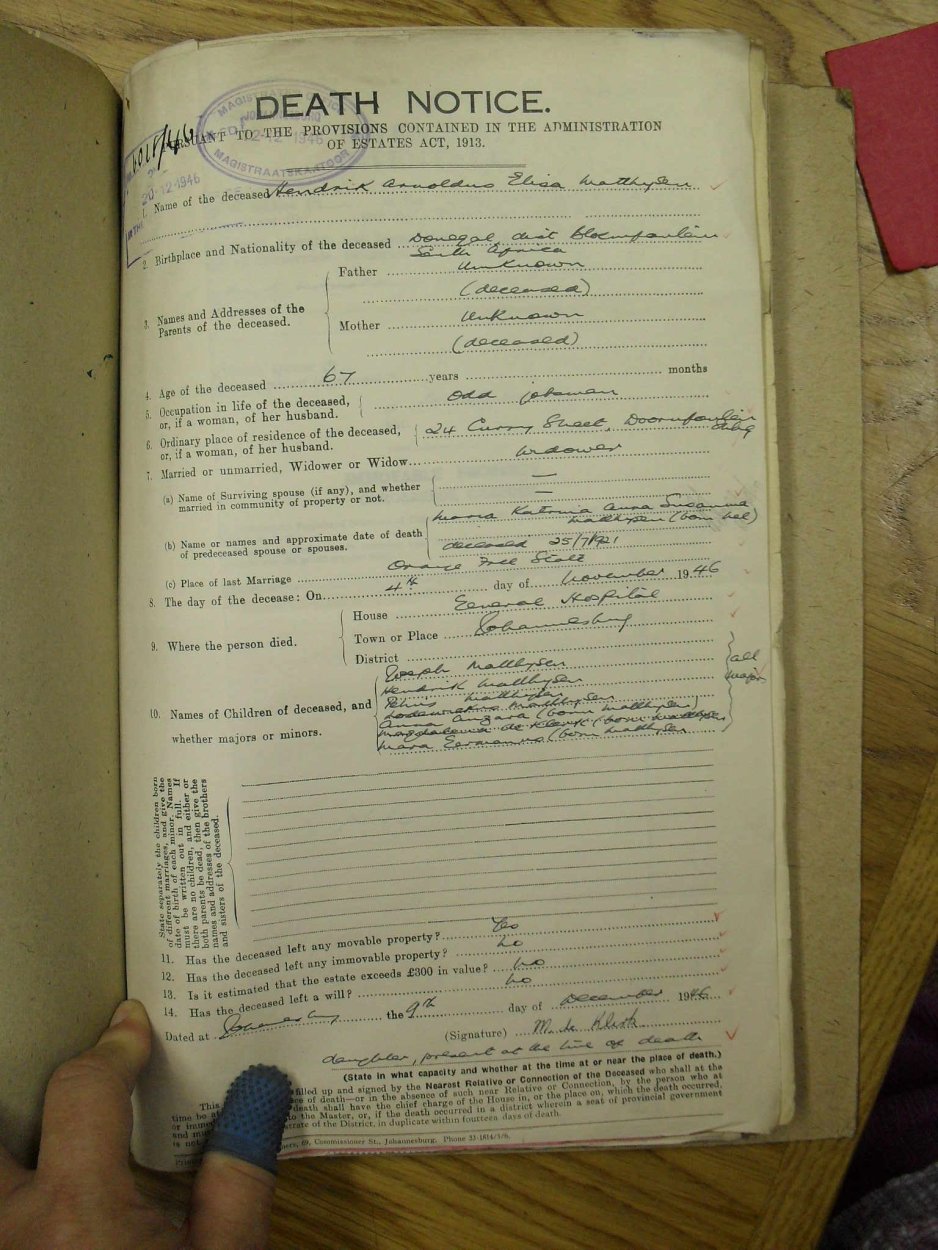 DEATH NOTICE.
PURSUANT TO THE PROVISIONS CONTAINED IN THE ADMINISTRATION
OF ESTATES ACT, 1913.
MAGISTRAATSKANTOOR
12-12-1946
20-12-1946
1. Name of the deceased Hendrik Arnoldus Elisa Matthysen
2. Birthplace and Nationality of the deceased Donegal, dist Bloemfontein
South Africa
3. Names and Addresses of the
Parents of the deceased.
Father Unknown
(deceased)
Mother Unknown
(deceased)
4. Age of the deceased 67 years months
5. Occupation in life of the deceased,
or, if a woman, of her husband.
Odd jobsman
6. Ordinary place of residence of the deceased,
or, if a woman, of her husband.
24 Curry Street, Doornfontein
Jhbg
7. Married or unmarried, Widower or Widow Widower
(a) Name of Surviving spouse (if any), and whether
married in community of property or not.
—
—
(b) Name or names and approximate date of death
of predeceased spouse or spouses.
Maria Katrina Anna Susanna
Matthysen (born Nel)
deceased 25/7/1921
(c) Place of last Marriage Orange Free State
8. The day of the decease: On 4th day of November 1946
9. Where the person died.
House General Hospital
Town or Place Johannesburg
District
10. Names of Children of deceased, and
whether majors or minors.
Joseph Matthysen
Hendrik Matthysen
Matthysen
Lodewickus Matthysen
Anna (born Matthysen)
Magdalena de Klerk (born Matthysen
Maria (born Matthysen
all
major
State separately the children born
of different marriages, and give the
date of birth of each minor. Names
must be written out in full. If
there are no children, and either or
both parents be dead, then give the
names and addresses of the brothers
and sisters of the deceased.
11. Has the deceased left any movable property? Yes
12. Has the deceased left any immovable property? No
13. Is it estimated that the estate exceeds £300 in value? No
14. Has the deceased left a will? No
Dated at Johannesburg the 9th day of December 1946
(Signature) M de Klerk
daughter, present at the time of death
(State in what capacity and whether at the time at or near the place of death.)
This filled up and signed by the Nearest Relative or Connection of the Deceased who shall at the
time be at ce of death—or in the absence of such near Relative or Connection, by the person who at
or immed death shall have the chief charge of the House in, or the place on, which the death occurred,
and mus to the Master, or, if the death occurred in a district wherein a seat of provincial government
is not trate of the District, in duplicate within fourteen days of death.
ners, 69, Commissioner St., Johannesburg. Phone 33-1614/5/6.